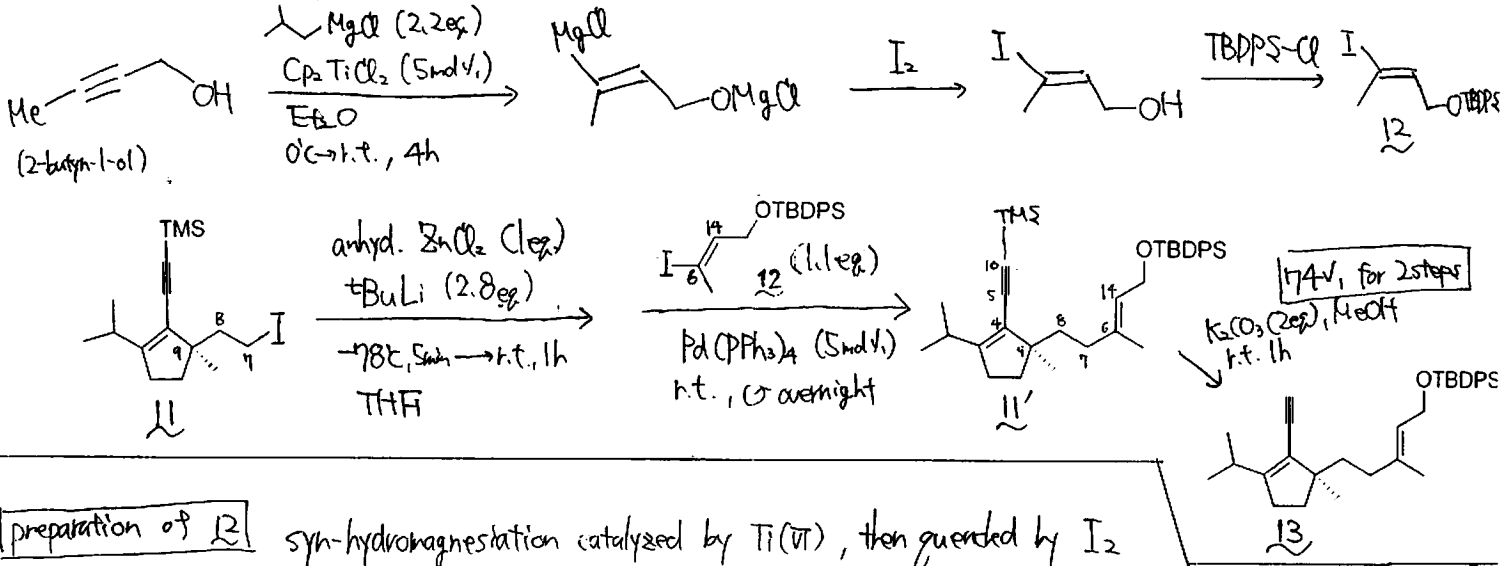 MgCl (2.2eq)
Cp₂TiCl₂ (5mol%)
Et₂O
0℃→r.t., 4h
Me
OH
(2-butyn-1-ol)
MgCl
OMgCl
I₂
I
OH
TBDPS-Cl
I
OTBDPS
12
TMS
8
I
9
7
11
anhyd. ZnCl₂ (1eq)
tBuLi (2.8eq)
-78℃, 5min → r.t., 1h
THF
OTBDPS
14
I
6
12 (1.1eq)
Pd(PPh₃)₄ (5mol%)
r.t., overnight
TMS
10
5
4
8
OTBDPS
14
6
7
11'
74% for 2 steps
K₂CO₃ (2eq), MeOH
r.t. 1h
OTBDPS
13
preparation of 12 syn-hydromagnesiation catalyzed by Ti(IV), then quenched by I₂